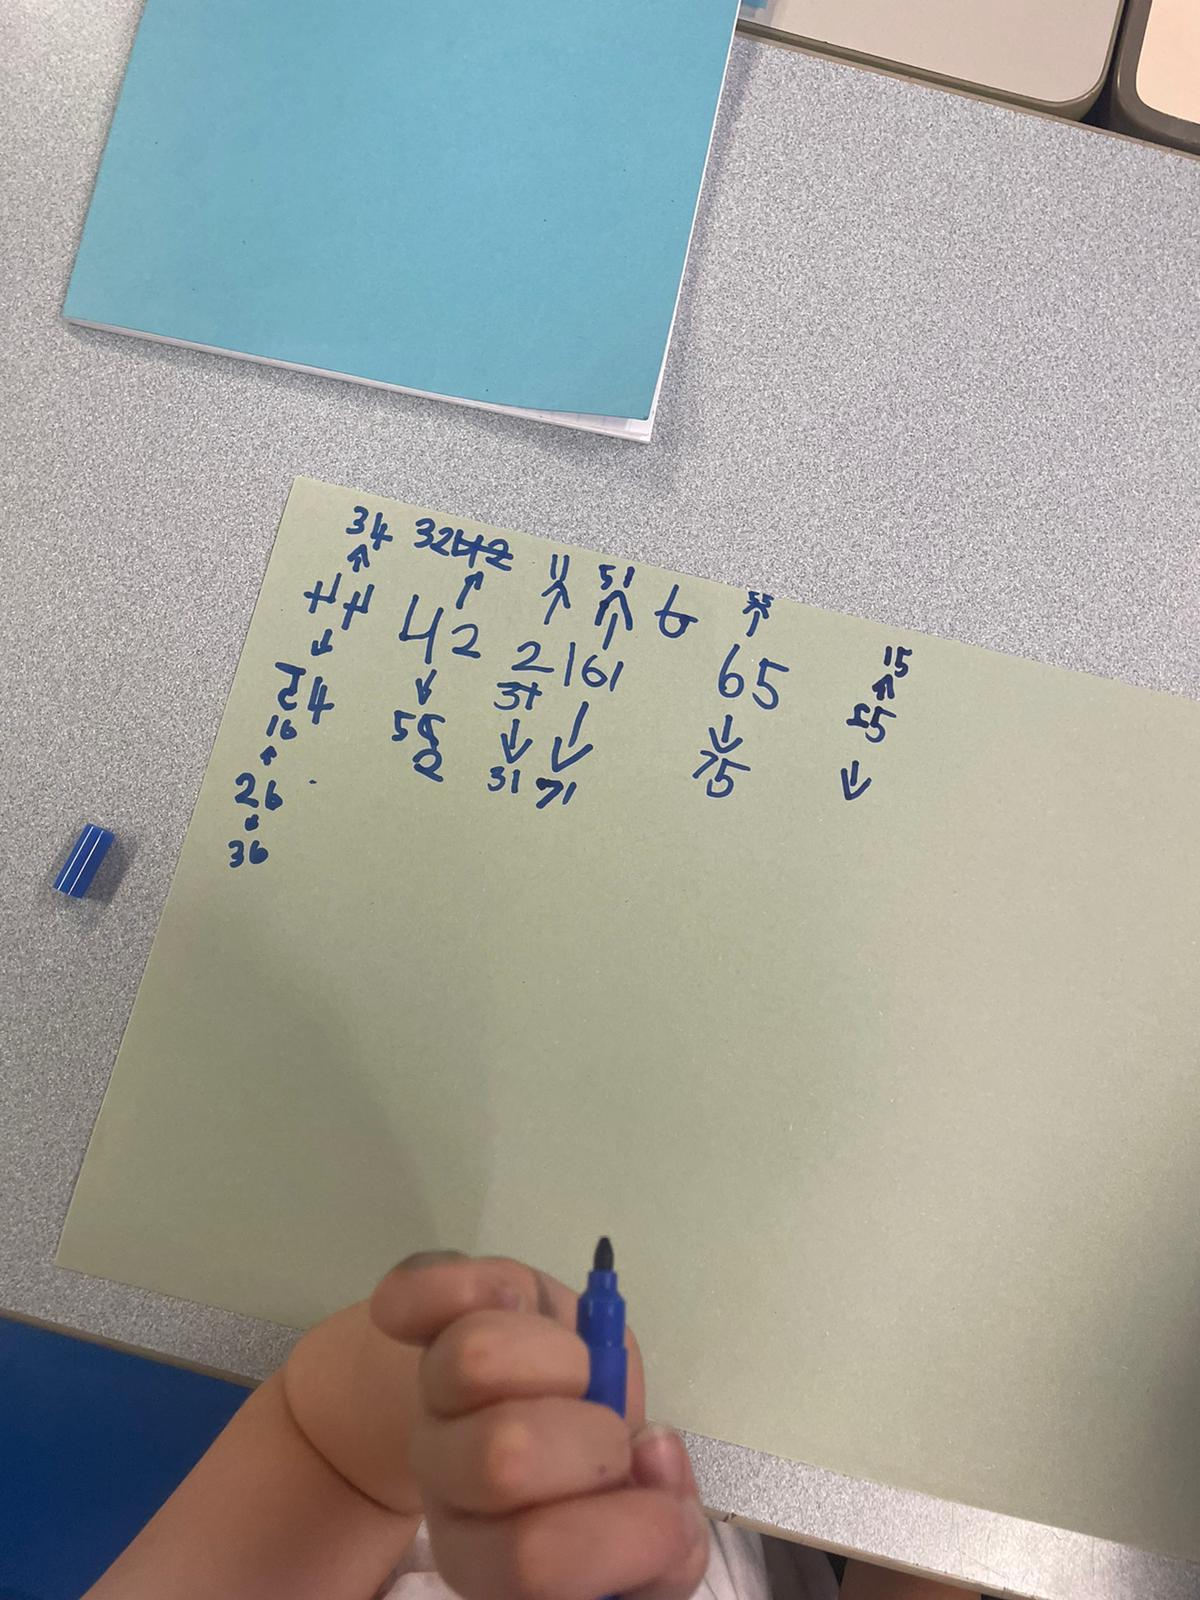 34 32 42 11 51 6 55
44 42 21 61 65 15
54 52 31 75 55
16 31 71
26
36